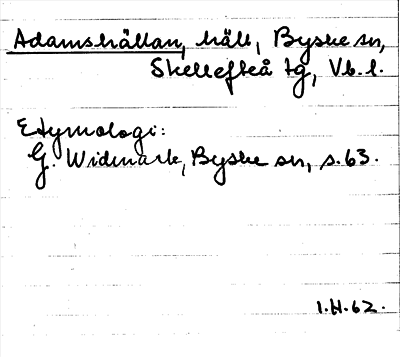 Adamshällan, häll, Byske sn,
Skellefteå tg, Vb. l.
Etymologi:
G. Widmark, Byske sn, s. 63.
1.H.62.